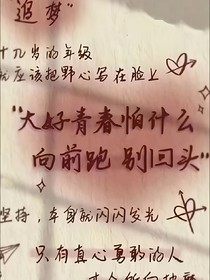 追梦"
十几岁的年级
就应该把野心写在脸上
"大好青春怕什么
向前跑 别回头"
坚持，本身就闪闪发光
只有真心勇敢的人
才会所向披靡